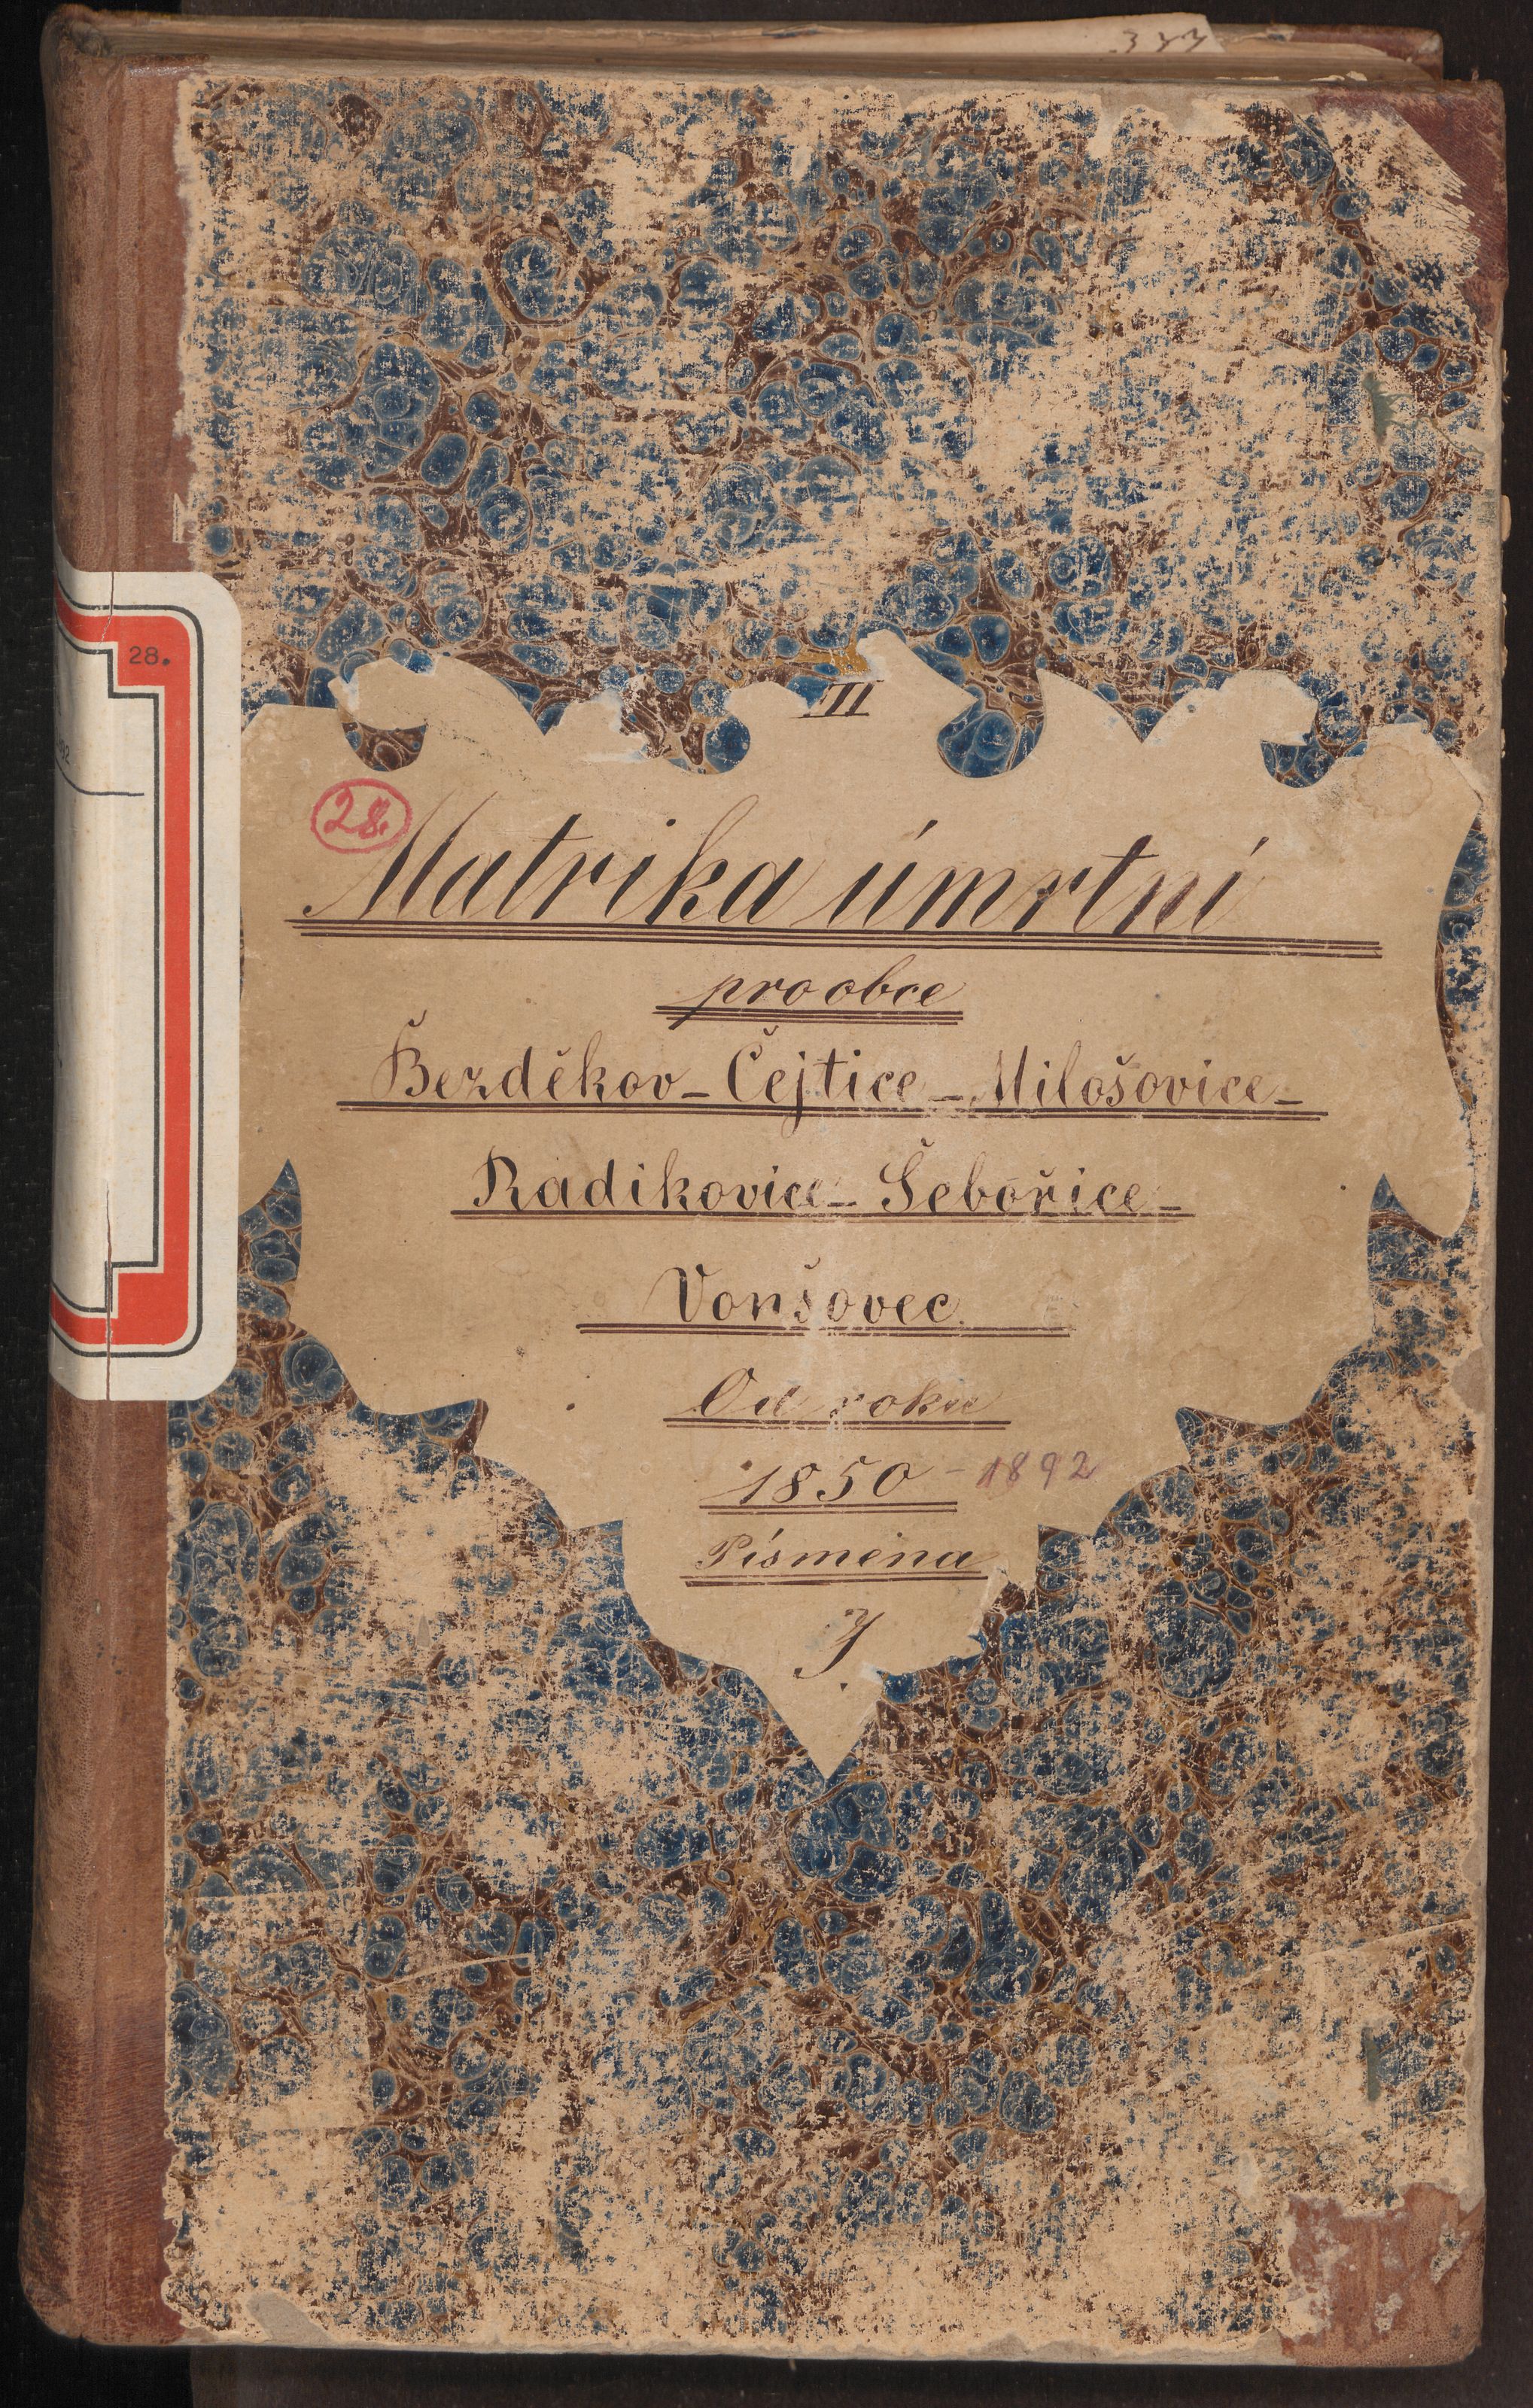 28.
III
28.
Matrika úmrtní
pro obce
Bezděkov – Čejtice – Milošovice –
Radikovice – Šebořice –
Voršovec.
Od roku
1850 – 1892
Písmena